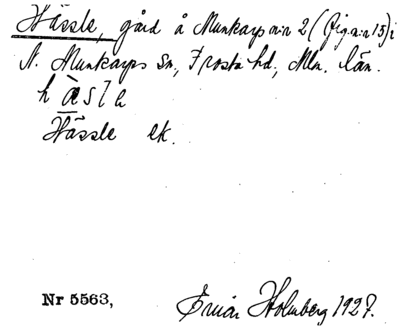 Hässle, gård å Munkarp n:r 2 (fig. n:r 15) i
N. Munkarps sn, Frosta hd, Mlm. län.
hàsle
Hässle ek.
Nr 5563, Einar Holmberg 1927.